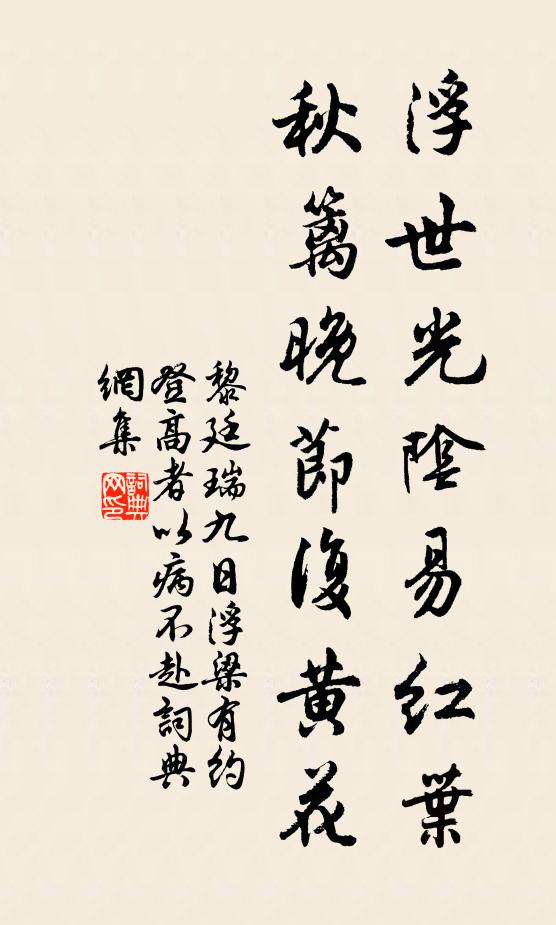 浮世光陰易紅葉
秋籬晚節復黃花
黎廷瑞九日浮梁有約
登高者以病不赴詞典
網集
詞典
网印